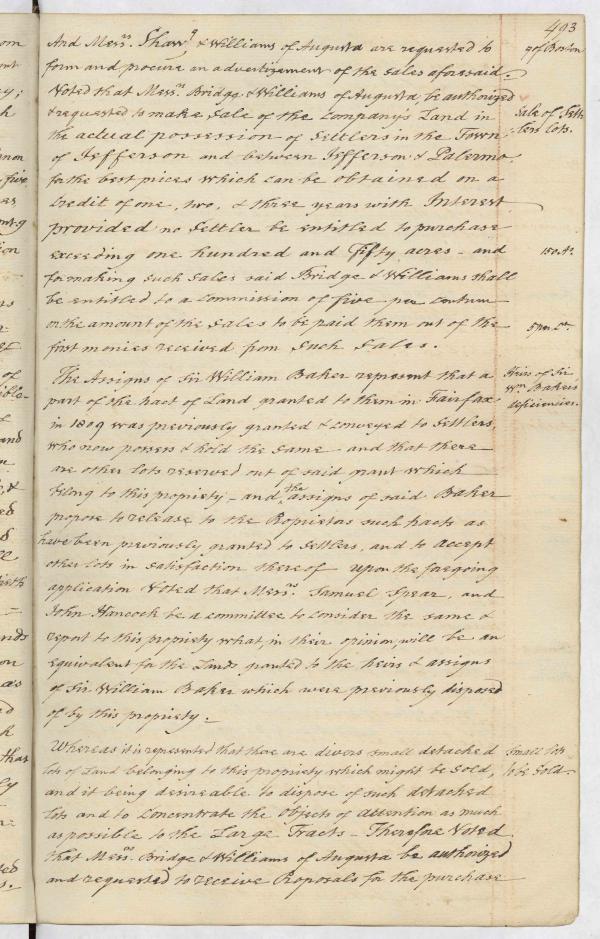 493
And Messrs. Shaw, & Williams of Augusta are requested to
form and procure an advertizement of the sales aforesaid.
Voted that Messrs. Bridge & Williams of Augusta, be authorized
& requested to make sale of the Company's Land in
the actual possession of Settlers in the Town
of Jefferson and between Jefferson & Palermo
for the best prices which can be obtained on a
Credit of one, two, & three years with Interest
provided no Settler be entitled to purchase
exceeding one hundred and fifty acres - and
for making such sales said Bridge & Williams shall
be entitled to a commission of five per centum
on the amount of the sales to be paid them out of the
first monies received from such sales.
The Assigns of Sir William Baker represent that a
part of the tract of Land granted to them in Fairfax
in 1809 was previously granted & conveyed to Settlers,
who now possess & hold the same - and that there
are other lots reserved out of said grant which
belong to this propriety - and the assigns of said Baker
propose to release to the Proprietors such tracts as
have been previously granted to settlers, and to accept
other lots in satisfaction thereof upon the foregoing
application Voted that Messrs. Samuel Spear, and
John Hancock be a committee to consider the same &
report to this propriety what, in their opinion, will be an
equivalent for the Lands granted to the heirs & assigns
of Sir William Baker which were previously disposed
of by this propriety.
Whereas it is represented that there are divers small detached
lots of Land belonging to this propriety which might be sold,
and it being desireable to dispose of such detached
lots and to concentrate the objects of attention as much
as possible to the Large Tracts - Therefore Voted
that Messrs. Bridge & Williams of Augusta be authorized
and requested to receive Proposals for the purchase
of Boston
Sale of Sett-
lers lots.
150 As.
5 per Ct.
Heirs of Sir
Wm. Baker's
deficiencies.
Small lots
to be sold